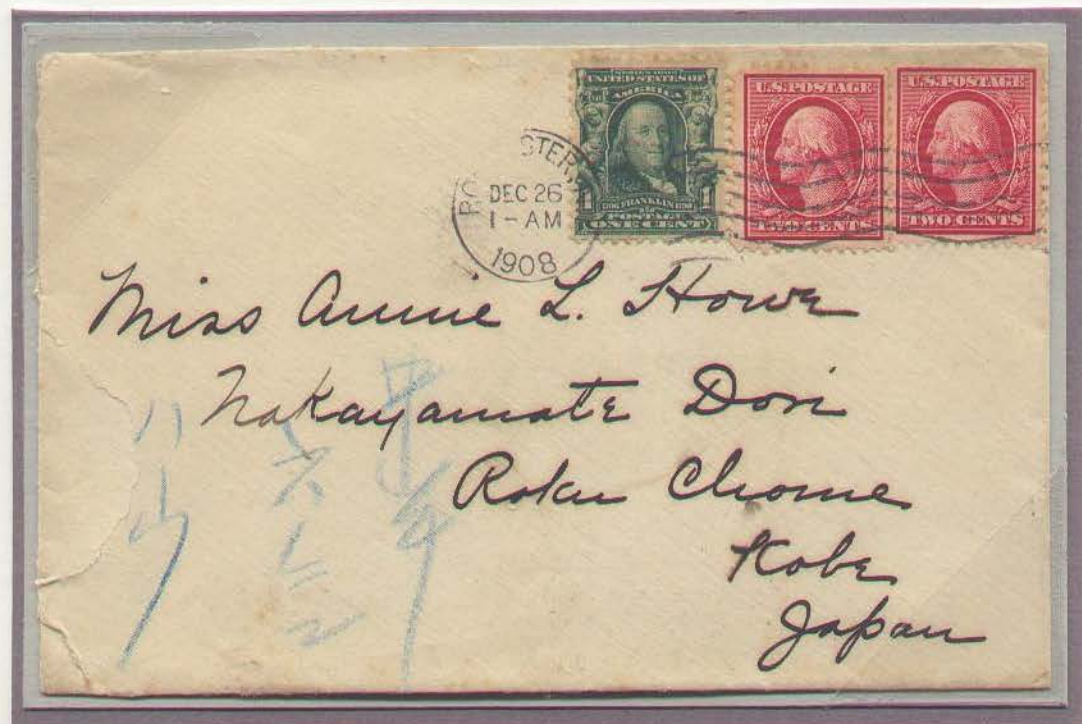 UNITED STATES OF
AMERICA
FRANKLIN
POSTAGE
ONE CENT
U.S. POSTAGE
TWO CENTS
U.S. POSTAGE
TWO CENTS
DEC 26
1-AM
1908
Miss Annie L. Howe
Nakayamate Dori
Roku Chome
Kobe
Japan